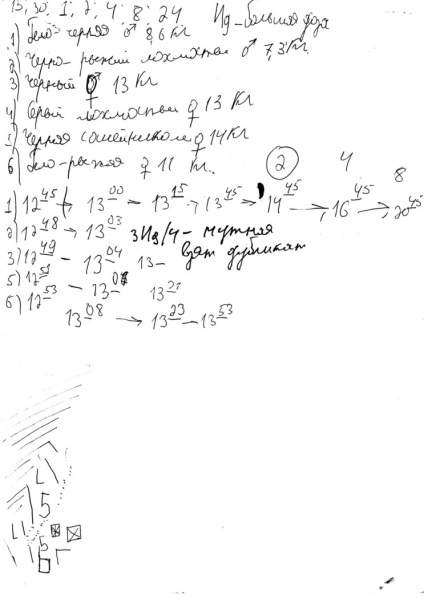 15; 30; 1; 2; 4; 8; 24 Ид-большая доза
1) Бело-черная ♂ 8,6 Кг
2) Черно-рыжий лохматый ♂ 7,3 Кг
3) Черный ♀ 13 Кг
4) Серый лохматый ♀ 13 Кг
5) Черная с ошейником ♀ 14 Кг
6) Бело-рыжая ♀ 11 Кг.
2 4 8
1) 12 45 13 00 – 13 15 → 13 45 → 14 45 → 16 45 → 20 45
2) 12 48 → 13 03 3 Ид/4 - мутная
взят дубликат
3) 12 49 – 13 04 13 –
5) 12 51
6) 12 53 – 13 13 21
13 08 → 13 23 – 13 53
5
5